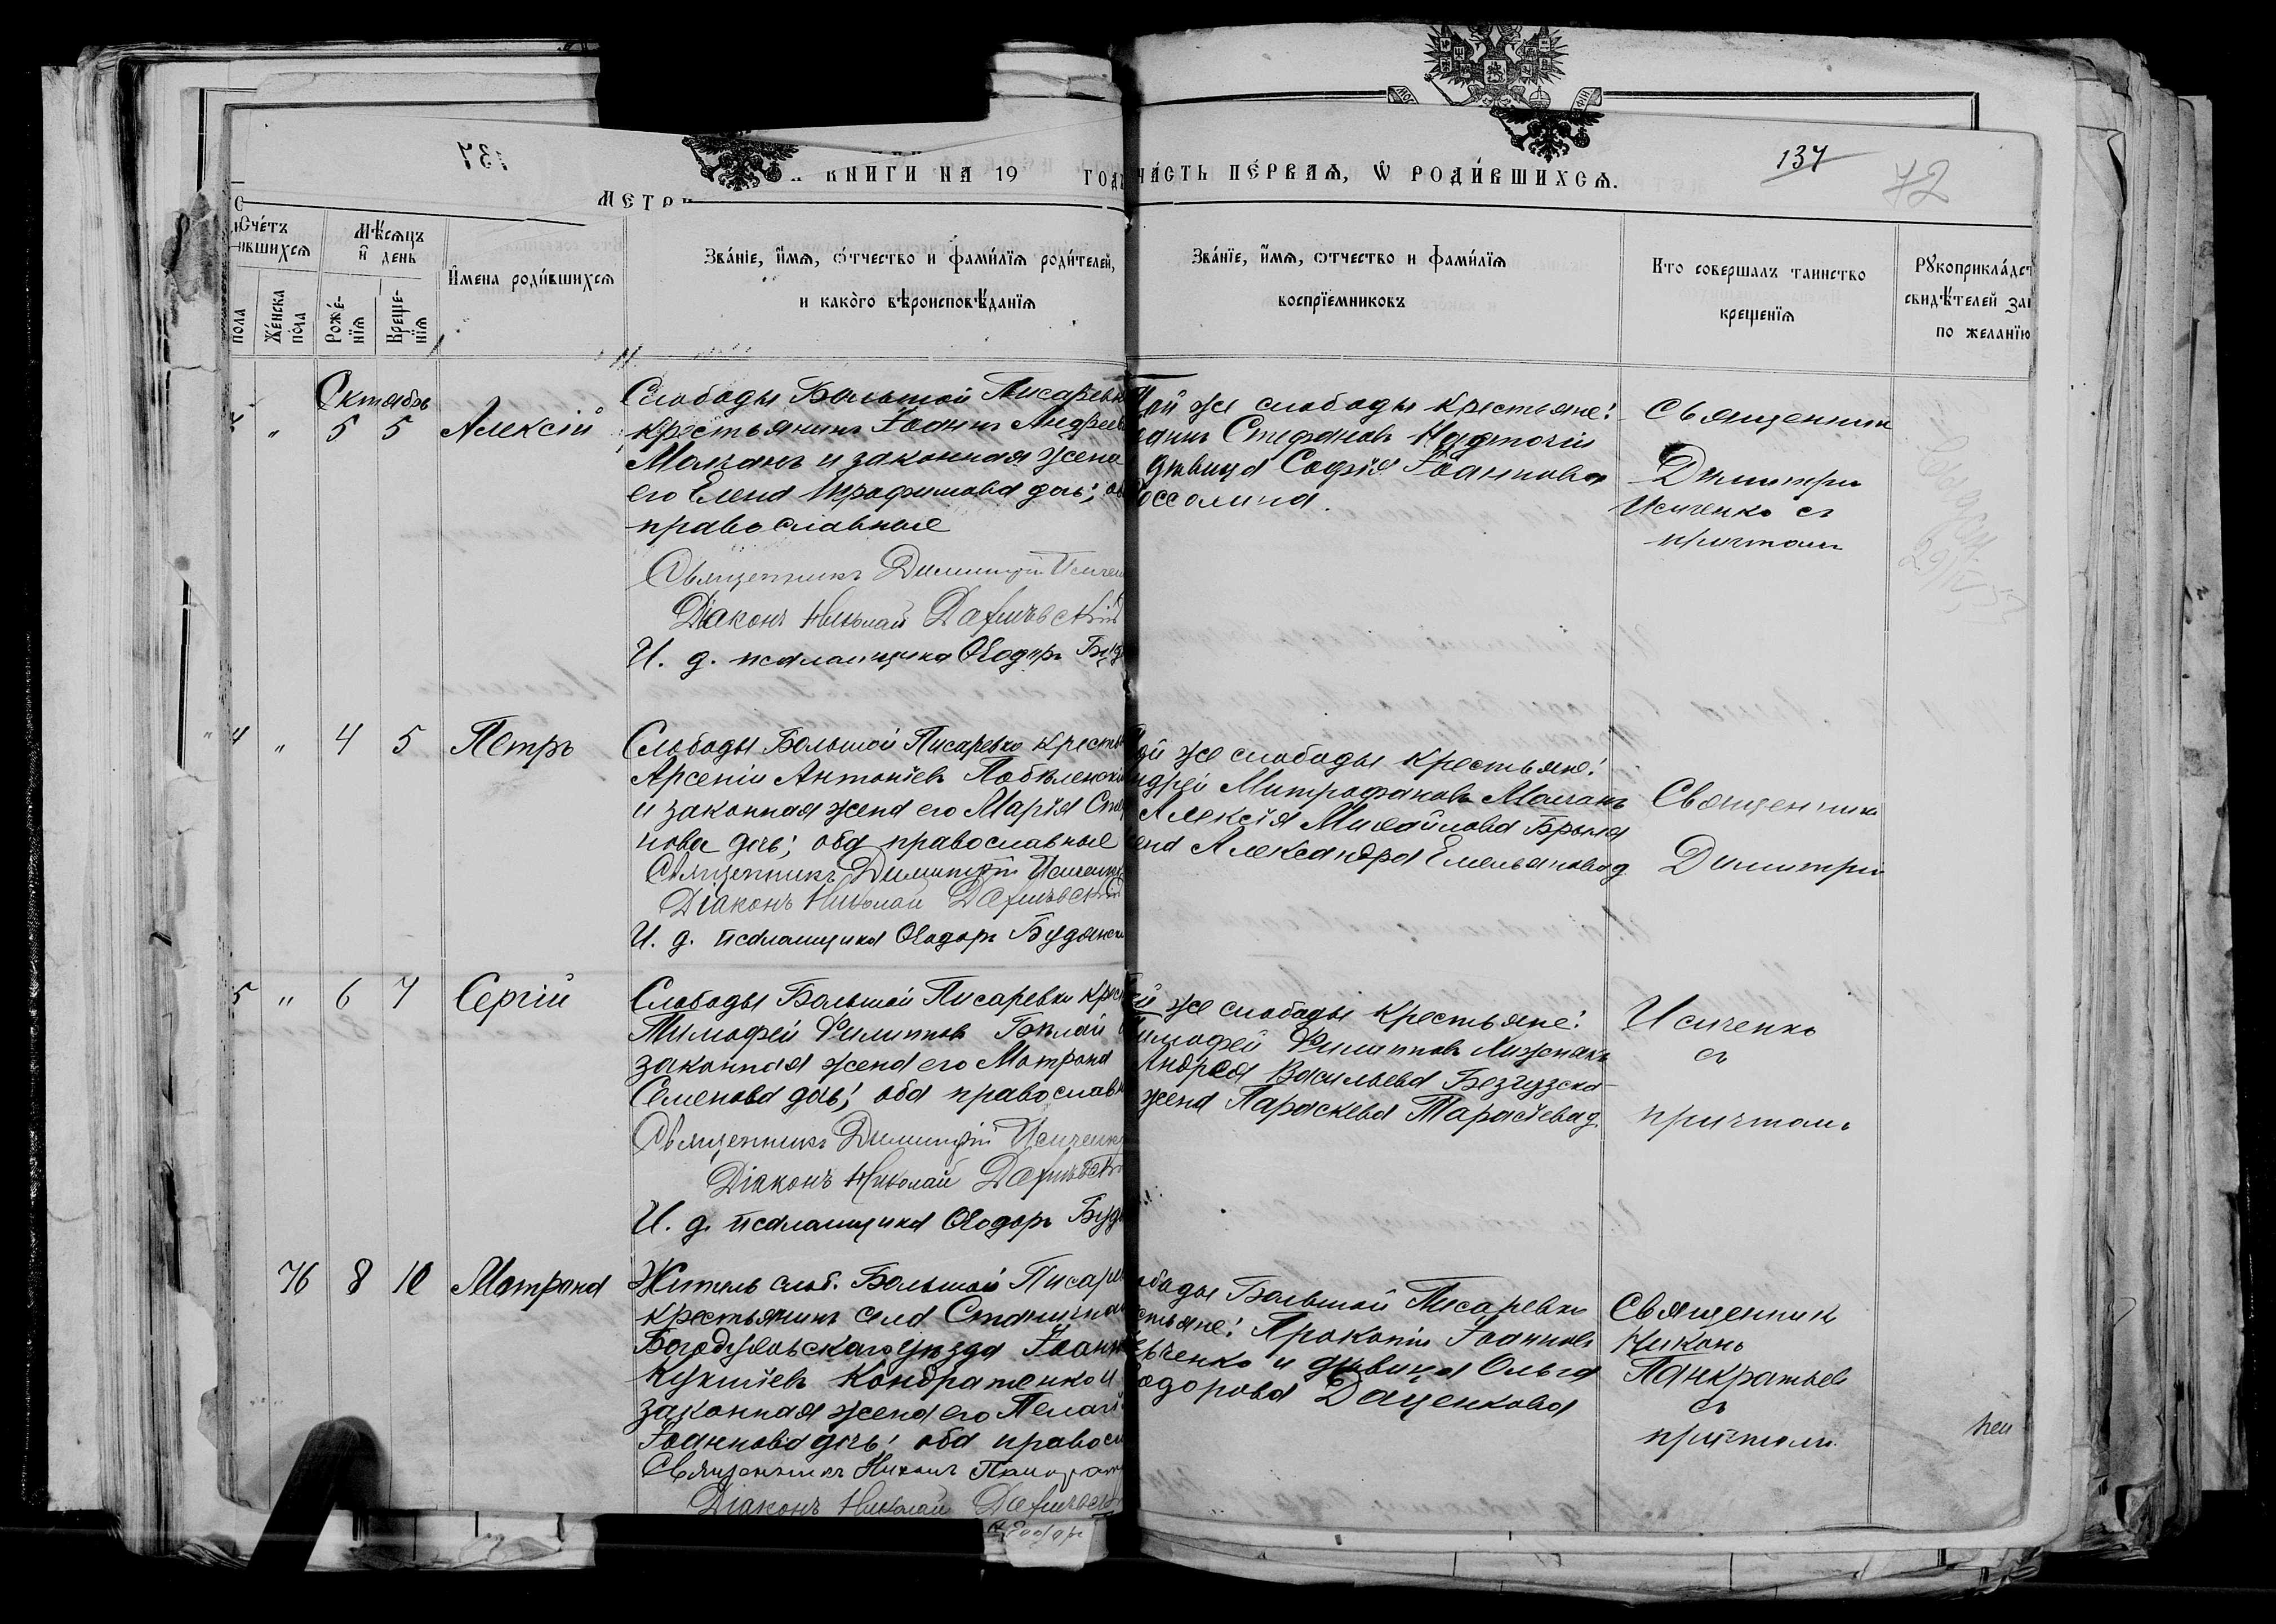 137
МЕТРИ
КНИГИ НА 19 ГОДЪ
ЧА́СТЬ ПЕ́РВАѦ, Ѡ РОДИ́ВШИХСѦ.
137
72
Сче́тъ
ившихсѧ
Мѣ́сѧцъ
и҆ день
И҆мена роди́вшихсѧ
Зва́нїе, и҆́мѧ, ѻ҆́тчество и фами́лїѧ роди́телей,
и како́го вѣроисповѣ́данїѧ
Зва́нїе, и҆́мѧ, ѻ҆́тчество и фами́лїѧ
воспрїемниковъ
Кто совершалъ таинство
крещенїѧ
Рꙋкоприкла́дст
свидѣ́телей за
по желанїю
пола
Же́нска
по́ла
Рож́е-
нїѧ
Креще-
нїѧ
Октябрь
" 5 5 Алексій
Слободы Большой Писаревк
крестьянинъ Іоаннъ Андреев
Малканъ и законная жена
его Елена Трофимова дочь; об
православные
Священникъ Димитрій Исичен
Діаконъ Николай
И. д. псаломщика Ѳеодоръ Буд
Той же слободы крестьяне:
Стефановъ Надточій
дѣвица Софія Іоаннова
Россолина.
Священник
Димитри
Исиченко съ
причтомъ
4 " 4 5 Петръ
Слободы Большой Писаревки крестья
Арсеній Антоніевъ
и законная жена его Марія Сте
нова дочь; оба православные
Священникъ Димитрій Исиченк
Діаконъ Николай
И. д. псаломщика Ѳеодоръ Будянск
ой же слободы крестьяне:
ндрей Митрофановъ
Алексія Михайлова Брыля
ена Александра Емельянова д.
Священник
Димитрій
5 " 6 7 Сергій
Слободы Большой Писаревки крест
Тимофей Филипповъ Бѣлай
законная жена его Матрона
Семенова дочь; оба православн
Священникъ Димитрій Исиченк
Діаконъ Николай
И. д. псаломщика Ѳеодоръ Буд
ой же слободы крестьяне:
имофей Филипповъ
Андрея Васильева
жена Параскева Тарасіева д.
Исиченко
съ
причтомъ
76 8 10 Матрона
Житель слоб. Большой Писарев
крестьянинъ села Станичнаго
Богодуховскаго уѣзда Іоаннъ
Кондратенко и
законная жена его Пелагі
Іоаннова дочь; оба правосл
Священникъ Никонъ Панкрат
Діаконъ Николай
Ѳеодоръ
ободы Большой Писаревки
стьяне: Прокопій Іоанновъ
вченко и дѣвица Ольга
одорова Даценкова
Священник
Никонъ
Панкратьев
съ
причтомъ